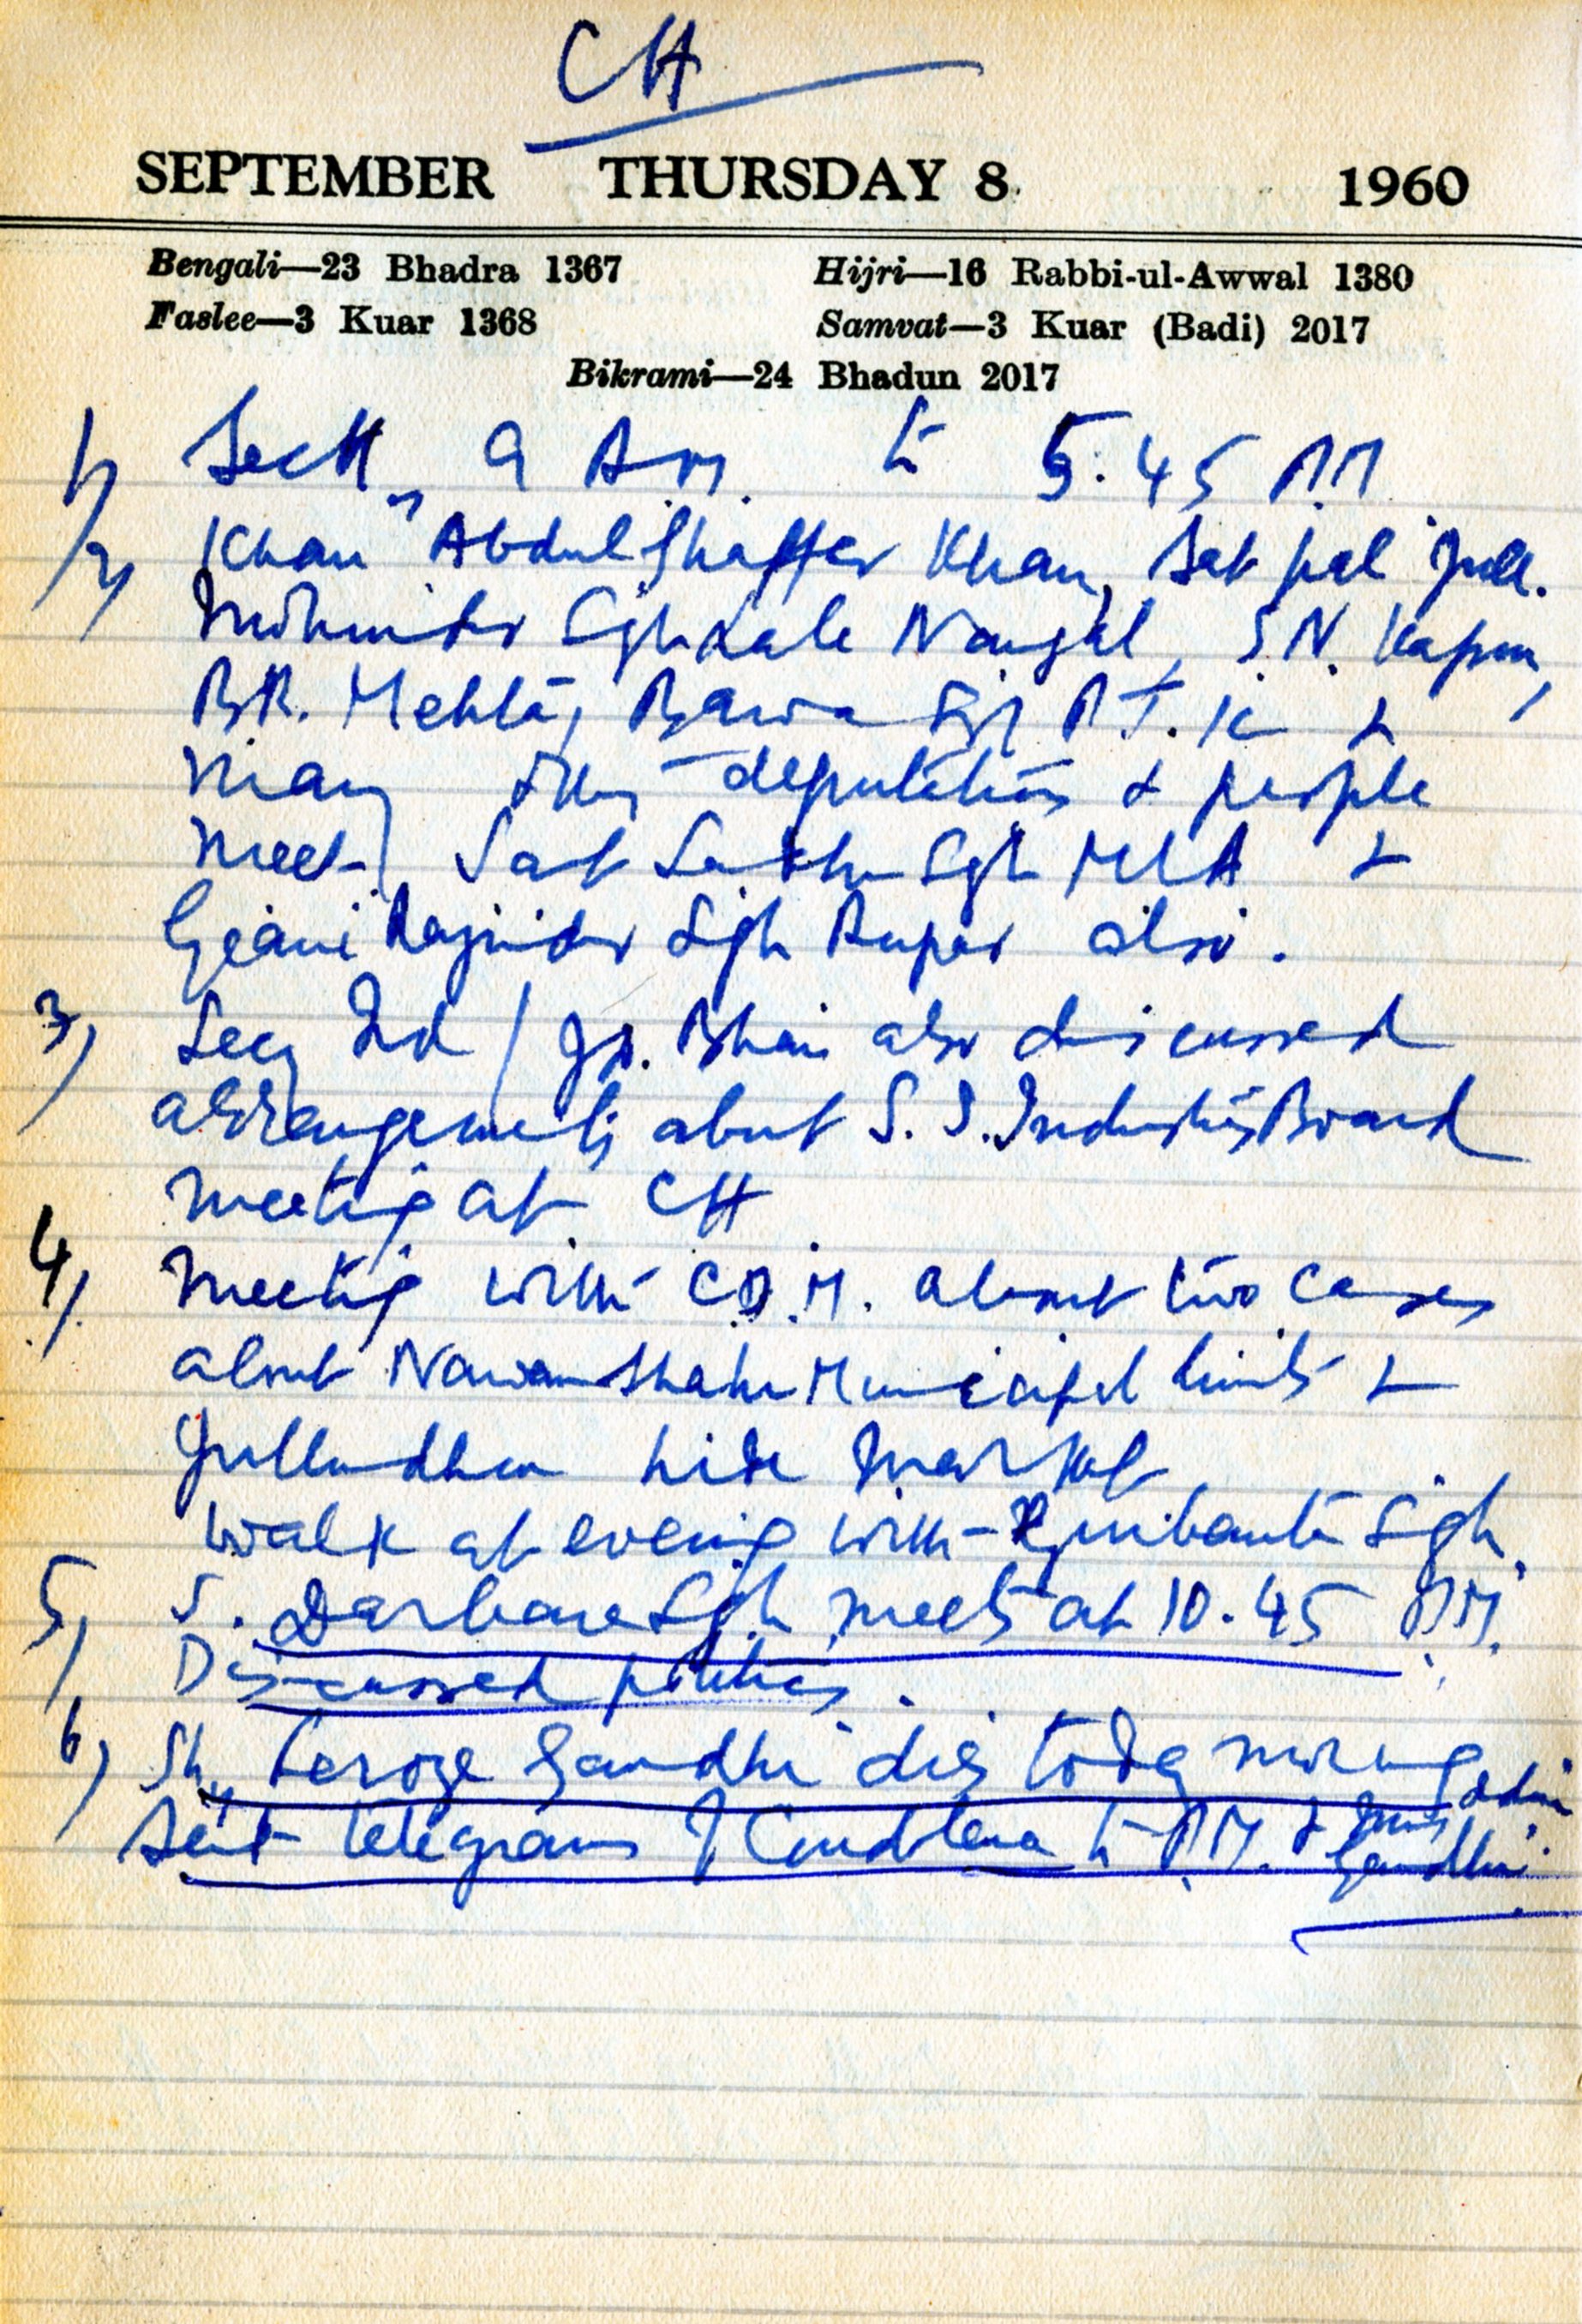 CH
SEPTEMBER THURSDAY 8 1960
Bengali—23 Bhadra 1367 Hijri—16 Rabbi-ul-Awwal 1380
Faslee—3 Kuar 1368 Samvat—3 Kuar (Badi) 2017
Bikrami—24 Bhadun 2017
1) Sectt 9 Am. to 5.45 PM
2) Khan Abdul Ghaffar Khan, Sat pal Jull.
Mohinder Sgh Nangal, S.N. Kapur,
B.R. Mehta, Bawa P.T.K &
many other deputations & people
meet, Sant Sgh MLA &
Geani Rajinder Sgh Rupar also.
3) Secy Ind / Bhai also discussed
arrangements about S.S. Industries Board
meeting at CH
4) meeting with C.D.M. about two cases
about Nawanshahr Municipal limits &
Jullundhur hide market
walk at evening with Gurbanta Sgh.
5) S. Darbara Sgh meets at 10.45 P.M.
Discussed politics.
6) Sh. Feroze Gandhi dies today morning
sent telegrams of Condolence to P.M. & Indira
Gandhi